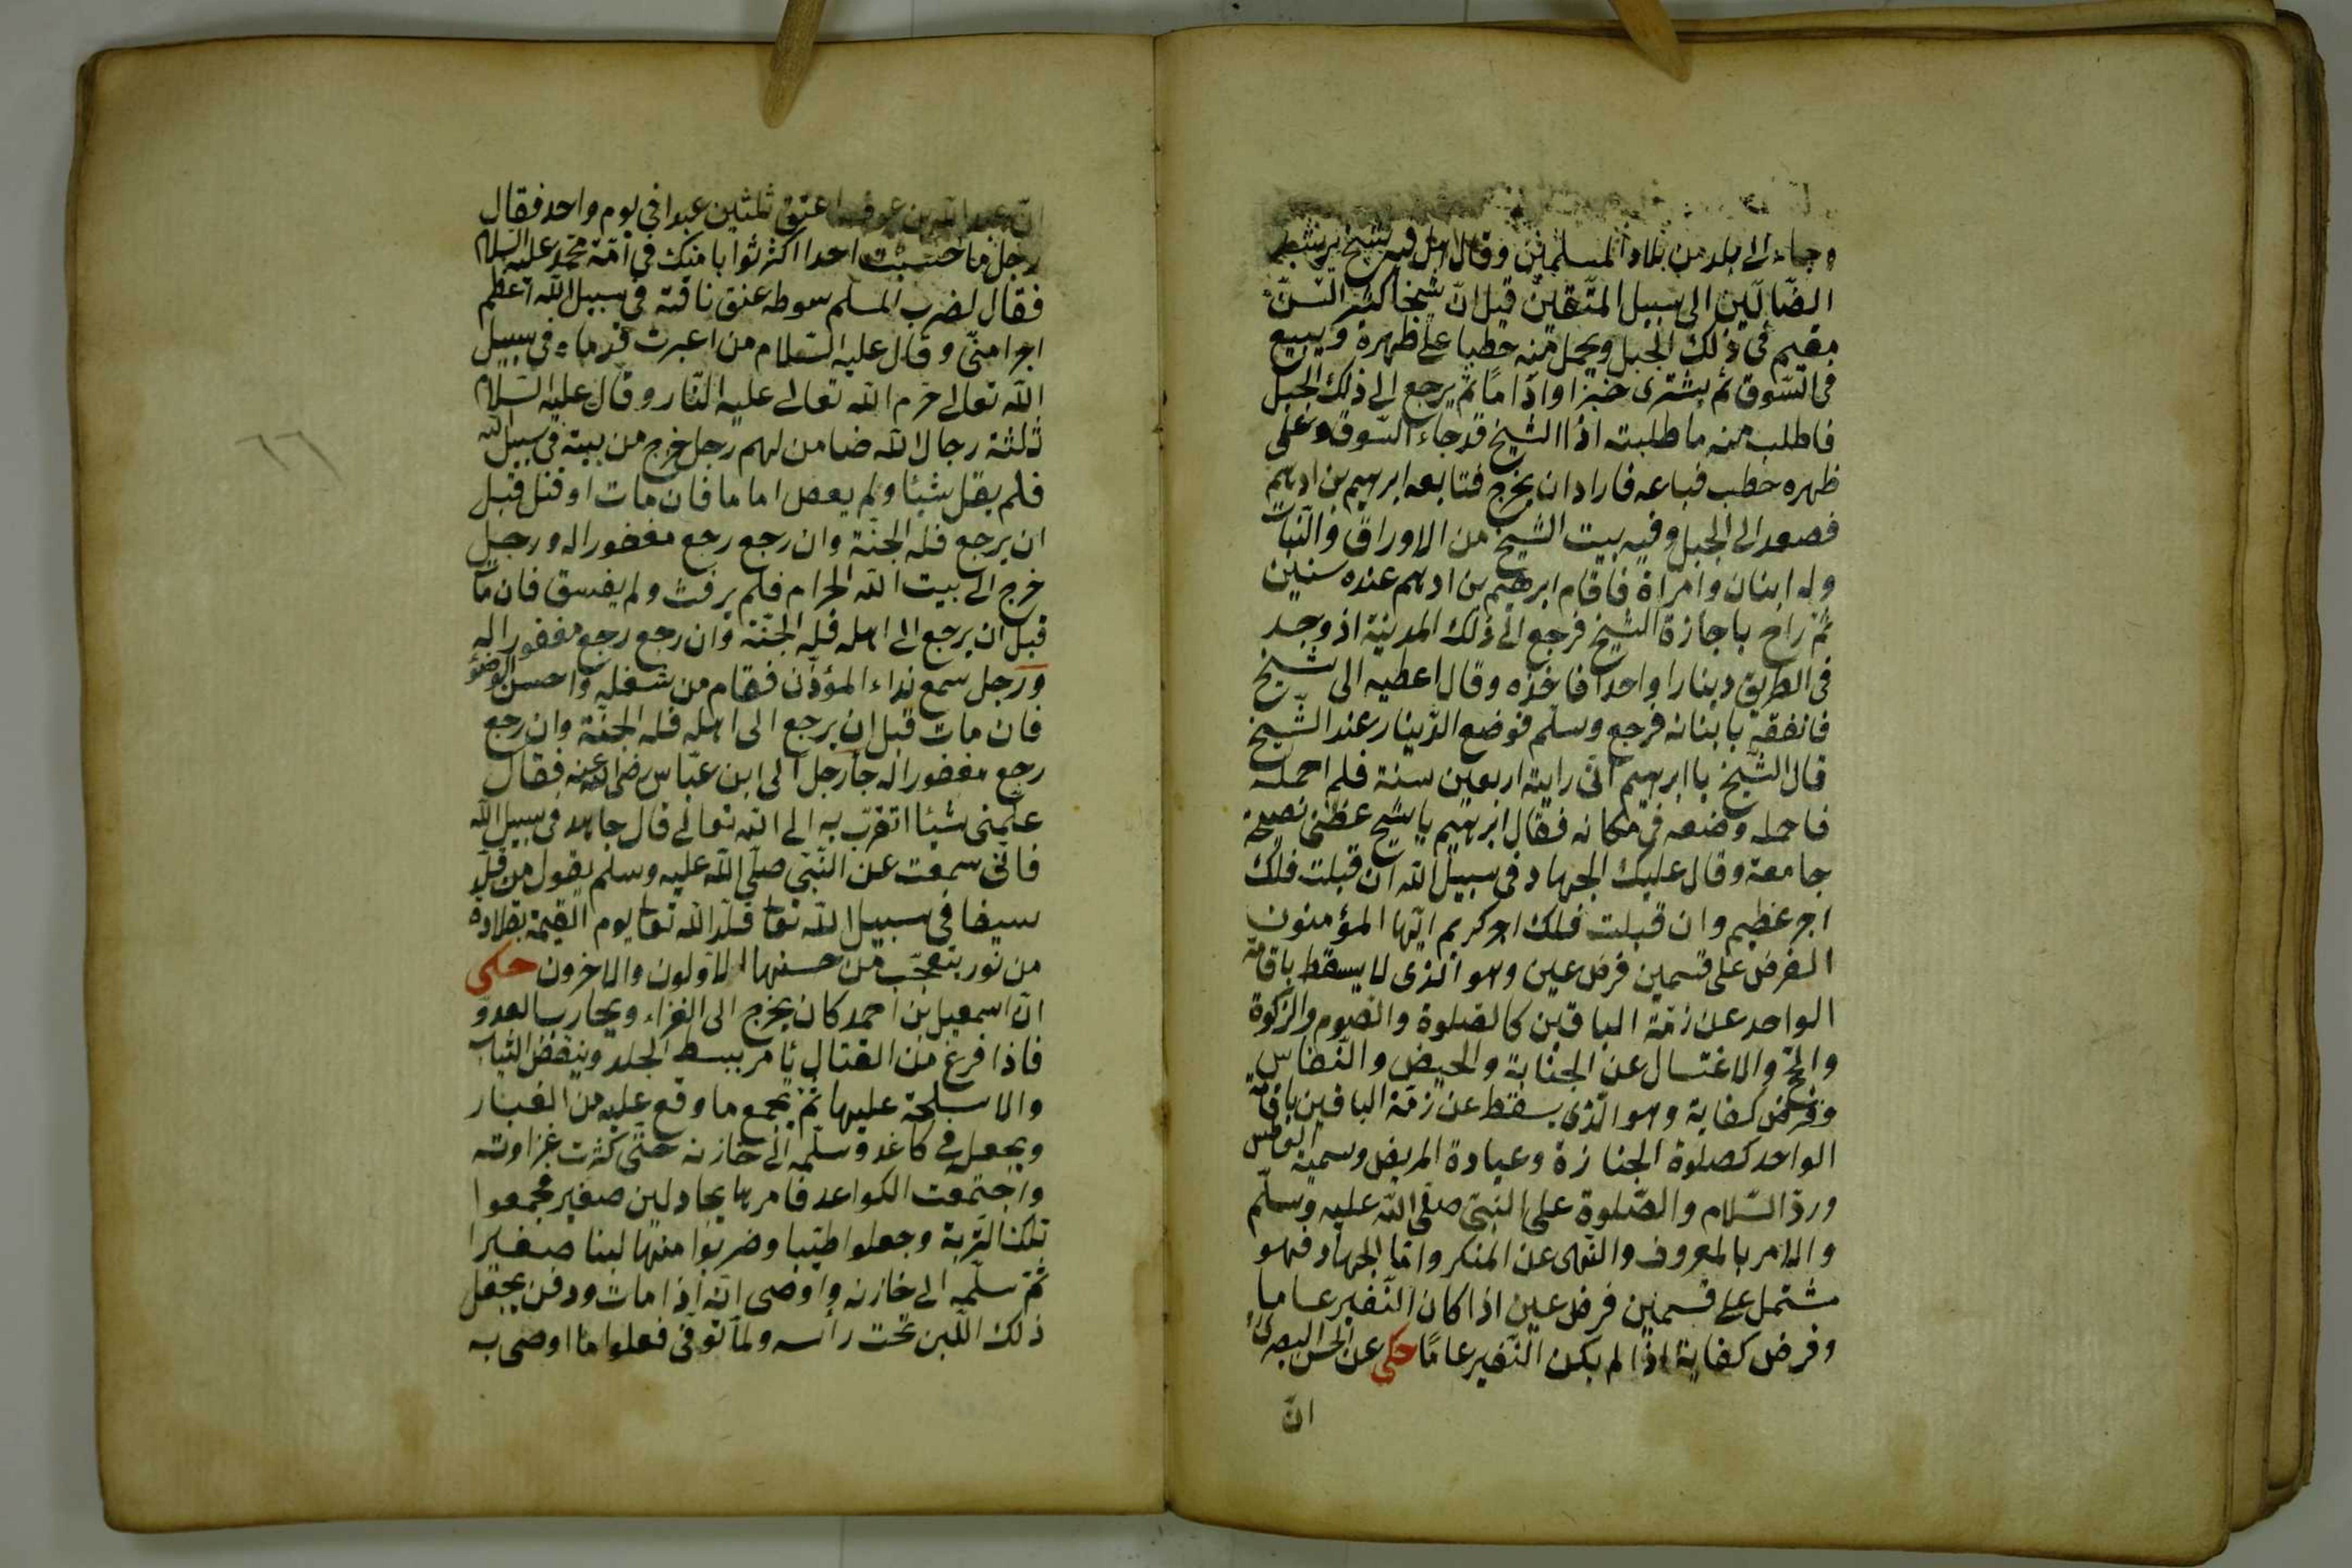 وجاء الى بلد من بلاد المسلمين وقال اهل فيه شيخ يرشد
الضالّين الى سبيل المتّقين قيل انّ شيخا كثير السنّ
مقيم فى ذلك الجبل ويحمل منه حطبا على ظهره ويبيع
فى السّوق ثم يشترى خبزا واداما ثم يرجع الى ذلك الجبل
فاطلب منه ما طلبته اذا الشيخ قد جاء السّوق وعلى
ظهره حطب فباعه فاراد ان يخرج فتابعه ابرهيم بن ادهم
فصعد الى الجبل وفيه بيت الشيخ من الاوراق والنّبات
وله ابنان وامراة فاقام ابرهيم بن ادهم عنده سنين
ثمّ راح باجازة الشيخ فرجع الى ذلك المدينة اذ وجد
فى الطريق دينارا واحدا فاخذه وقال اعطيه الى شيخ
فانفقه بابنانه فرجع وسلّم فوضع الدّينار عند الشّيخ
قال الشّيخ يا ابرهيم انّى رايته اربعين سنة فلم احمله
فاحمله وضعه فى مكانه فقال ابرهيم يا شيخ عظنى نصيحة
جامعة وقال عليك الجهاد فى سبيل الله ان قبلت فلك
اجر عظيم وان قبلت فلك اجر كريم ايّها المؤمنون
الفرض على قسمين فرض عين وهو الذى لا يسقط باقامة
الواحد عن ذمّة الباقين كالصلوة والصّوم والزكوة
والحجّ والاغتسال عن الجنابة والحيض والنّفاس
وفرض كفاية وهو الّذى يسقط عن ذمّة الباقين باقامة
الواحد كصلوة الجنازة وعيادة المريض وسمية العاطس
وردّ السّلام والصّلوة على النبىّ صلّى الله عليه وسلّم
والامر بالمعروف والنّهى عن المنكر وامّا الجهاد فهو
مشتمل على قسمين فرض عين اذا كان النّفير عاما
وفرض كفاية اذا لم يكن النّفير عامّا حكى عن الحسن البصرى
انّ
انّ عبد الله بن عوف اعتق ثلثين عبدا فى يوم واحد فقال
رجل ما حسبت احدا اكثر ثوابا منك فى امّة محمّد عليه السلام
فقال لضرب المسلم سوطه عنق ناقته فى سبيل الله اعظم
اجرا منّى وقال عليه السّلام من اغبرت قدماه فى سبيل
الله تعالى حرّم الله تعالى عليه النّار وقال عليه السّلام
ثلثة رجال الله ضامن لهم رجل خرج من بيته فى سبيل الله
فلم يقل شيئا ولم يعص اماما فان مات او قتل قبل
ان يرجع فله الجنّة وان رجع رجع مغفورا له ورجل
خرج الى بيت الله الحرام فلم يرفث ولم يفسق فان مات
قبل ان يرجع الى اهله فله الجنّة وان رجع رجع مغفورا له
ورجل سمع نداء المؤذّن فقام من شغله واحسن الوضؤ
فان مات قبل ان يرجع الى اهله فله الجنّة وان رجع
رجع مغفورا له جاء رجل الى ابن عبّاس رضى الله عنه فقال
علّمنى شيئا اتقرّب به الى الله تعالى قال جاهد فى سبيل الله
فانّى سمعت عن النّبىّ صلّى الله عليه وسلّم يقول من قلّد
سيفا فى سبيل الله تعا قلّد الله تعا يوم القيمة بقلادة
من نور يتعجّب من حسنها الاوّلون والاخرون حكى
انّ اسمعيل بن احمد كان يخرج الى الغزاء ويحارب العدوّ
فاذا فرغ من القتال يامر ببسط الجلد وينفض الثياب
والاسلحة عليها ثمّ يجمع ما وقع عليه من الغبار
ويجعل فى كاغد وسلّمه الى خازنه حتّى كثرت غزاوته
واجتمعت الكواغد فامر بها يجاد لبن صغير فجمعوا
تلك التّربة وجعلوا طينا وضربوا منها لبنا صغيرا
ثمّ سلّمه الى خازنه واوصى انّه اذا مات ودفن يجعل
ذلك اللّبن تحت رأسه ولمّا توفّى فعلوا ما اوصى به
٦٦